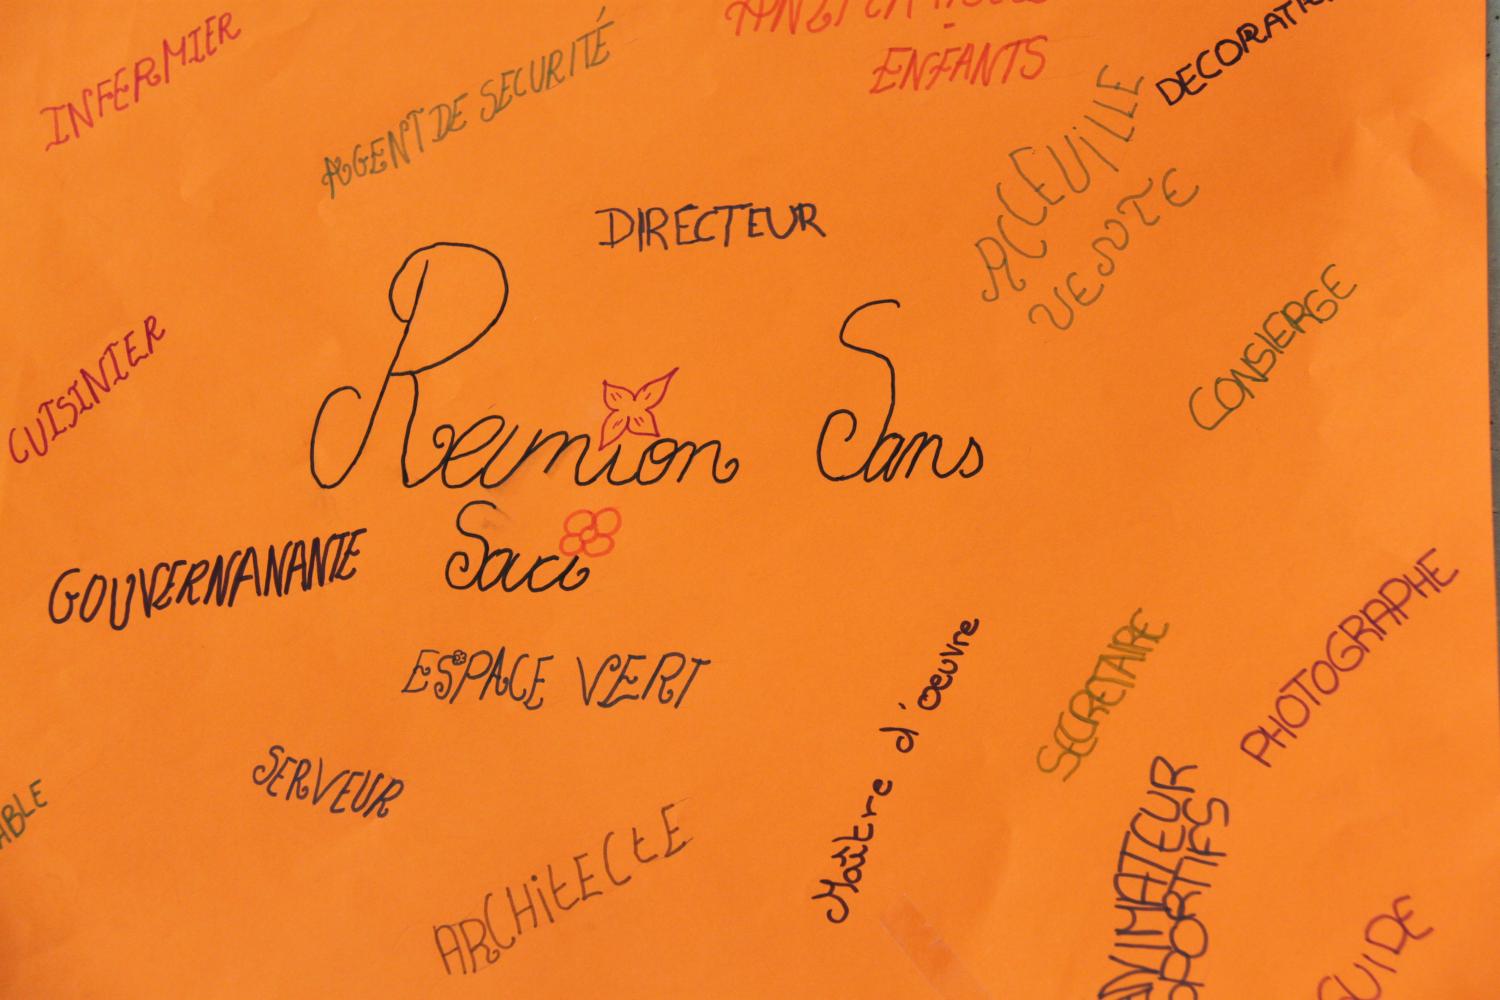 INFERMIER
AGENT DE SECURITÉ
ENFANTS
DECORATI
ACCEUILLE
VENTE
DIRECTEUR
CONSIERGE
CUISINIER
Reunion Sans
Souci
GOUVERNANANTE
ESPACE VERT
Maître d'oeuvre
SECRETAIRE
PHOTOGRAPHE
SERVEUR
ABLE
ARCHITECTE
ANIMATEUR
SPORTIFS
GUIDE